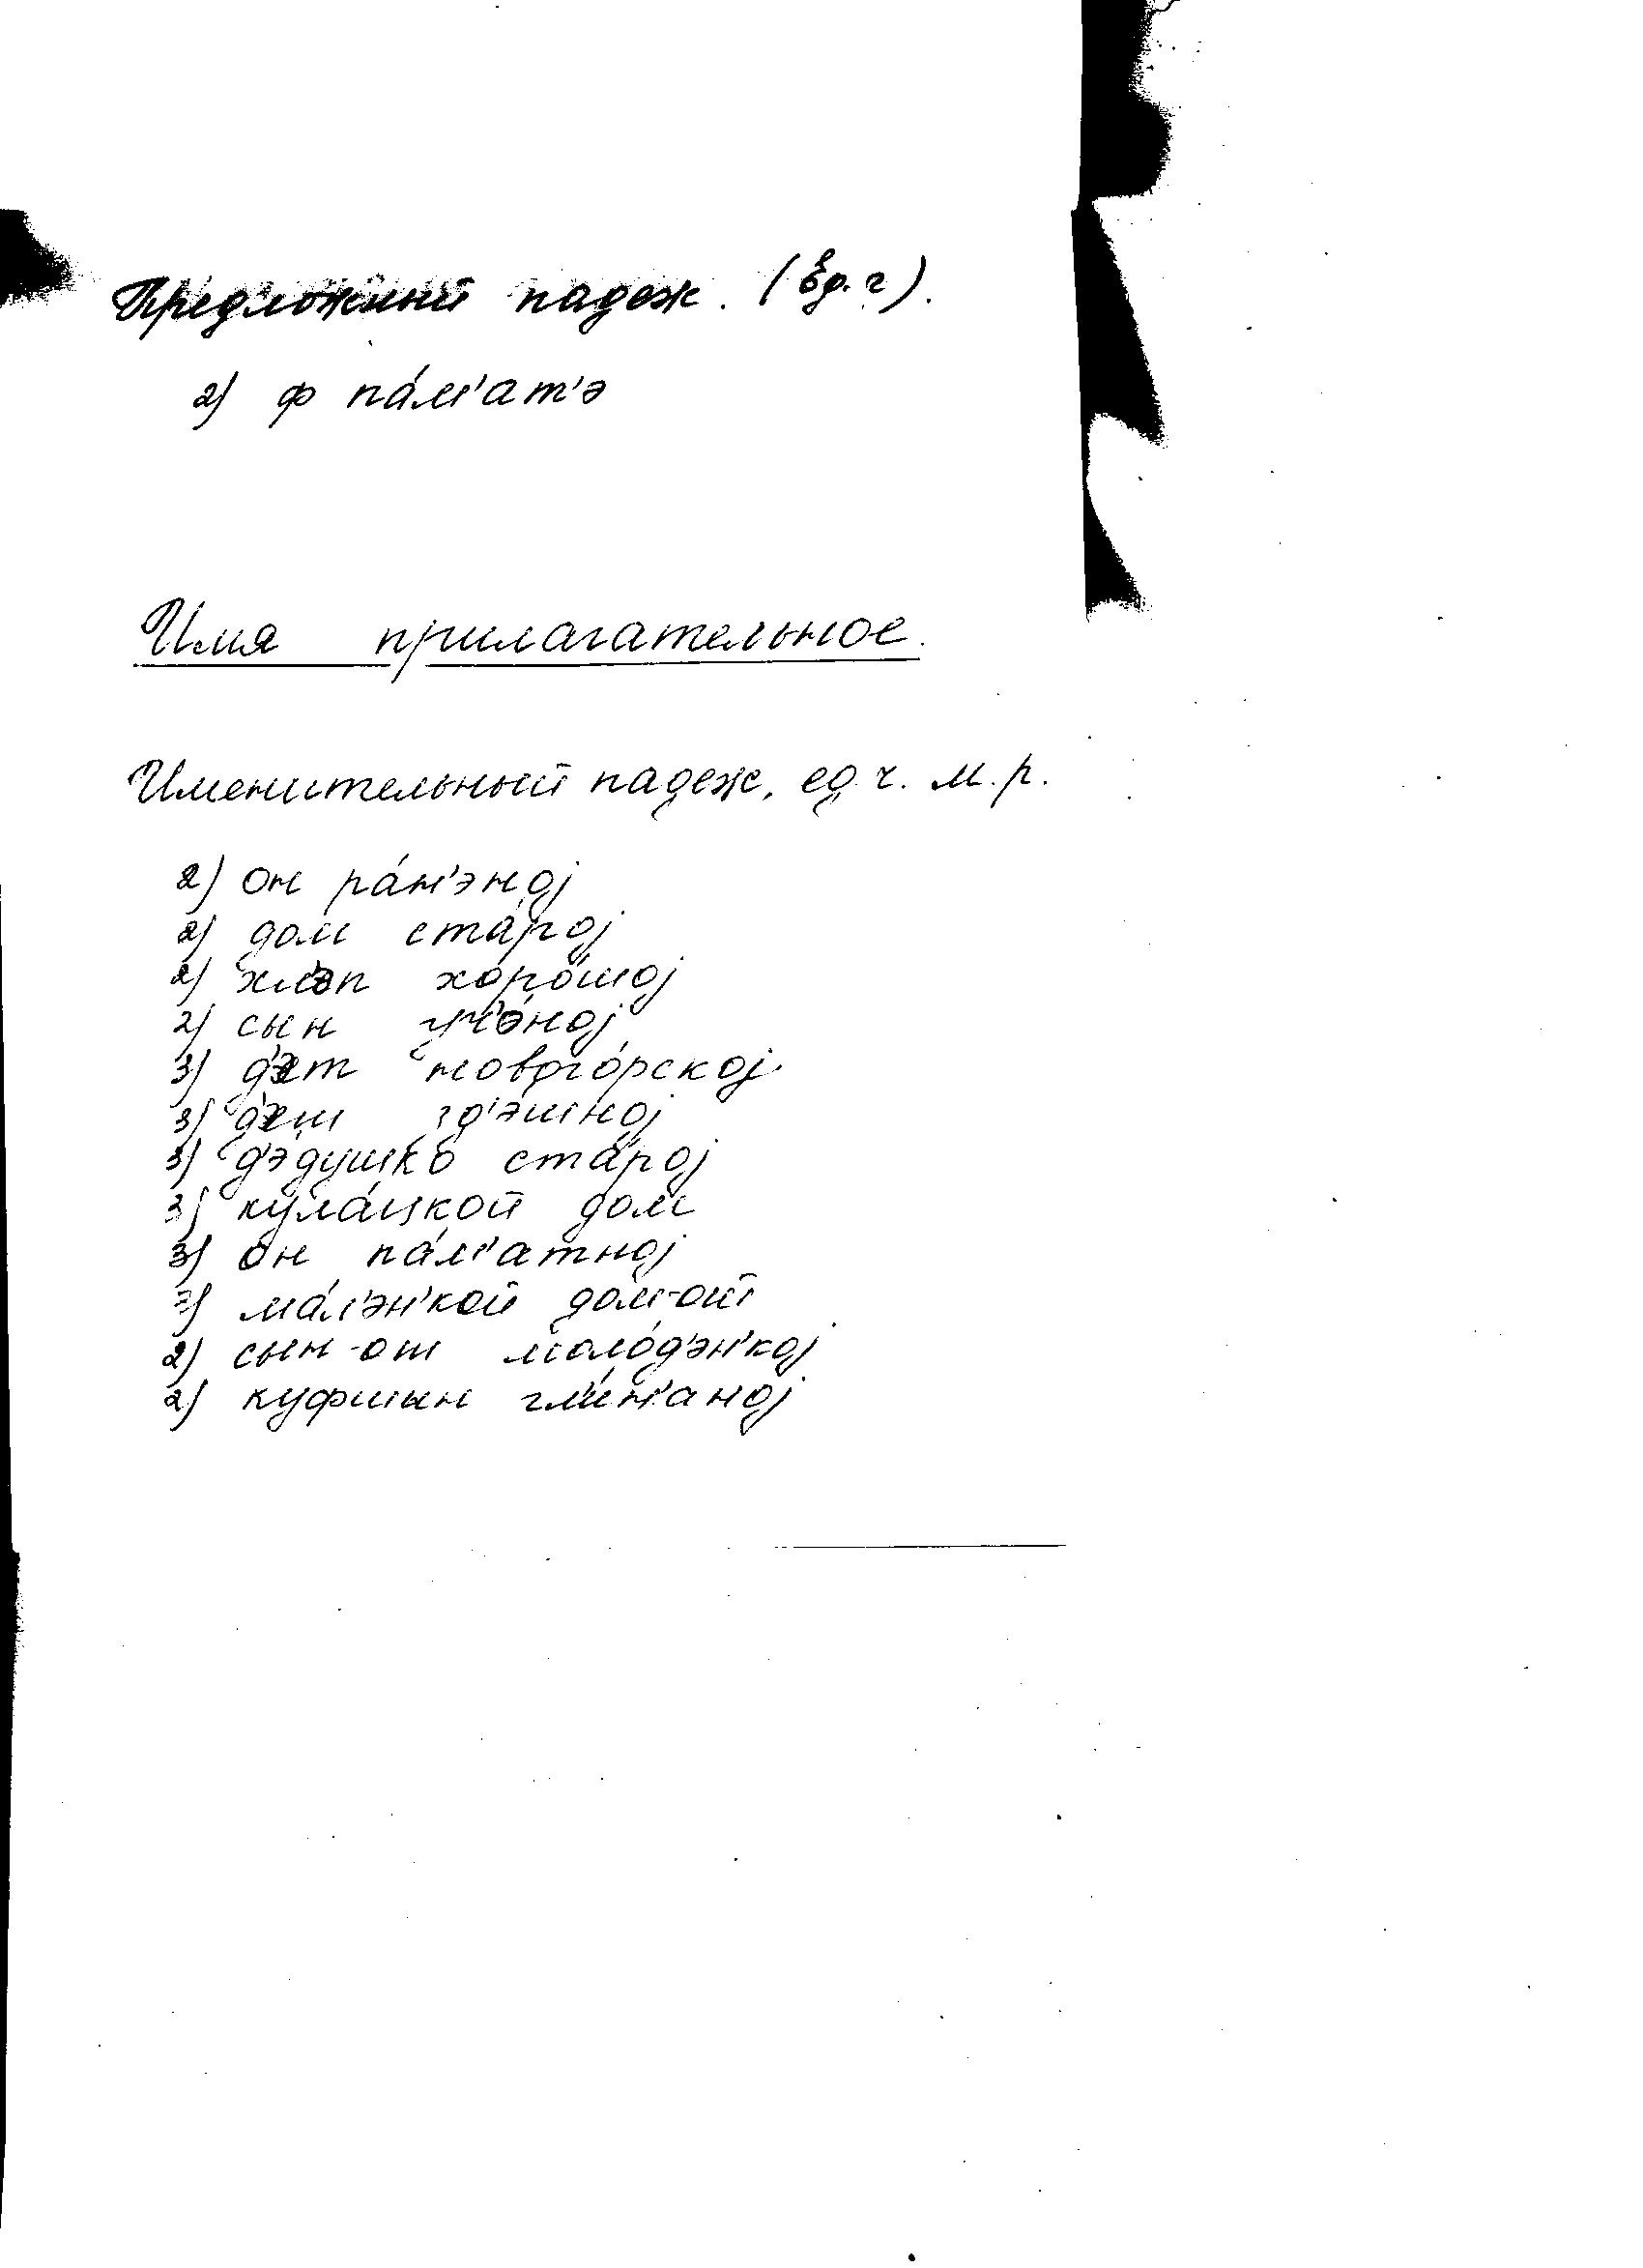 Предложный падеж. (ед. ч).
2) ф па́м'ат'э
Имя прилагательное.
Именительный падеж, ед. ч. м. р.
2) он ра́н'эној
2) дом ста́рој
2) хл'эп хоро́шој
2) сын уч'о́ној
3) д'эт новго́рској
3) д'эт зд'э́шној
3) д'э́душко ста́рој
3) кула́цкой дом
3) он па́м'атној
3) ма́л'эн'кой дом-от
2) сын-от моло́д'эн'кој
2) куфшын гл'и́н'аној